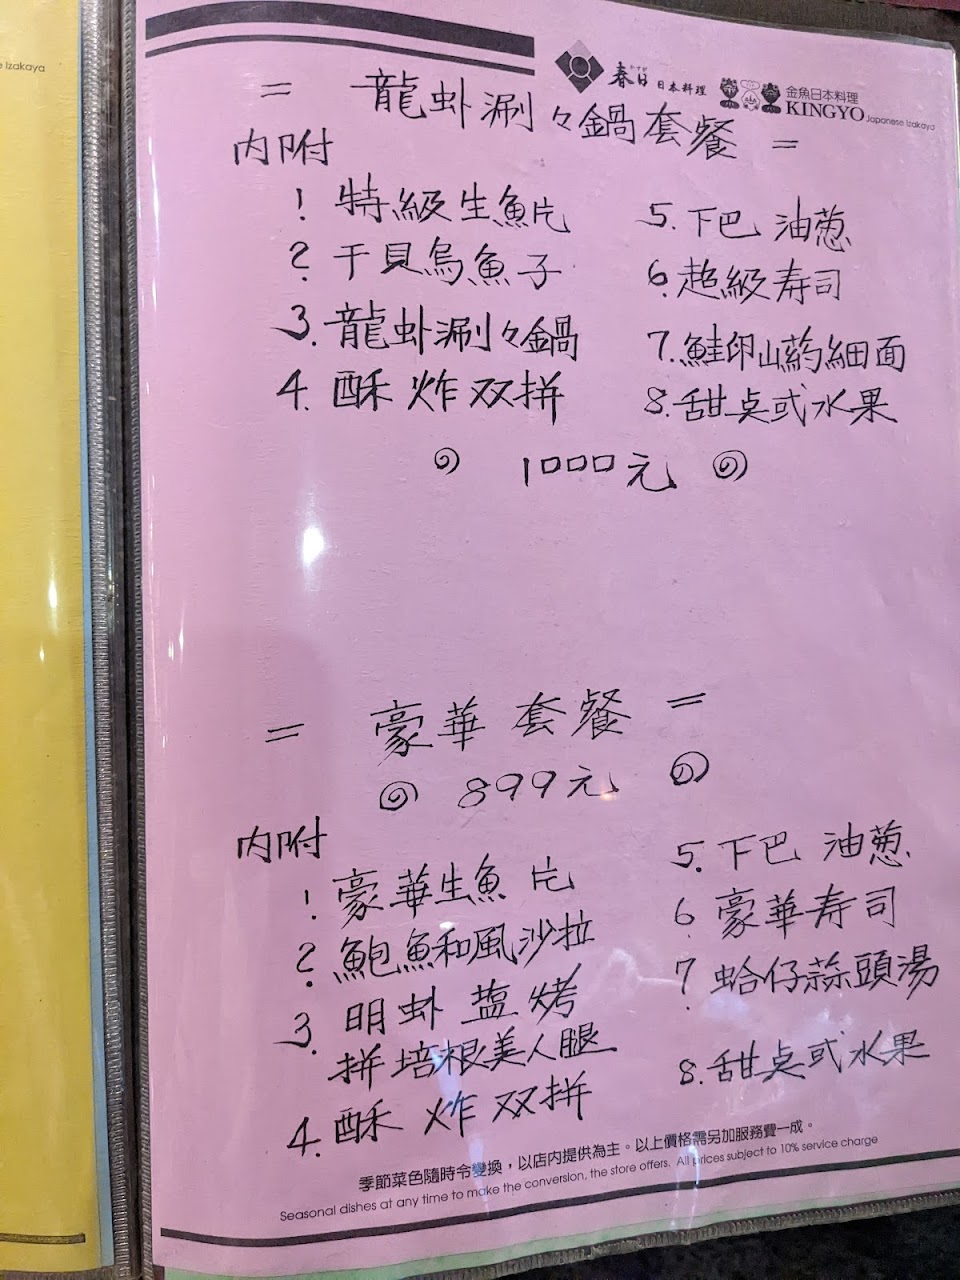 e Izakaya
春日 日本料理
金魚日本料理
KINGYO Japanese Izakaya
= 龍虾涮々鍋套餐 =
内附
1. 特級生魚片
2. 干貝烏魚子
3. 龍虾涮々鍋
4. 酥炸双拼
5. 下巴 油葱
6. 超級寿司
7. 鮭卵山药細面
8. 甜桌或水果
1000元
= 豪華套餐 =
899元
内附
1. 豪華生魚片
2. 鮑魚和風沙拉
3. 明虾 塩烤
拼培根美人腿
4. 酥炸双拼
5. 下巴 油葱
6. 豪華寿司
7. 蛤仔蒜頭湯
8. 甜桌或水果
季節菜色隨時令變換，以店内提供為主。以上價格需另加服務費一成。
Seasonal dishes at any time to make the conversion, the store offers. All prices subject to 10% service charge